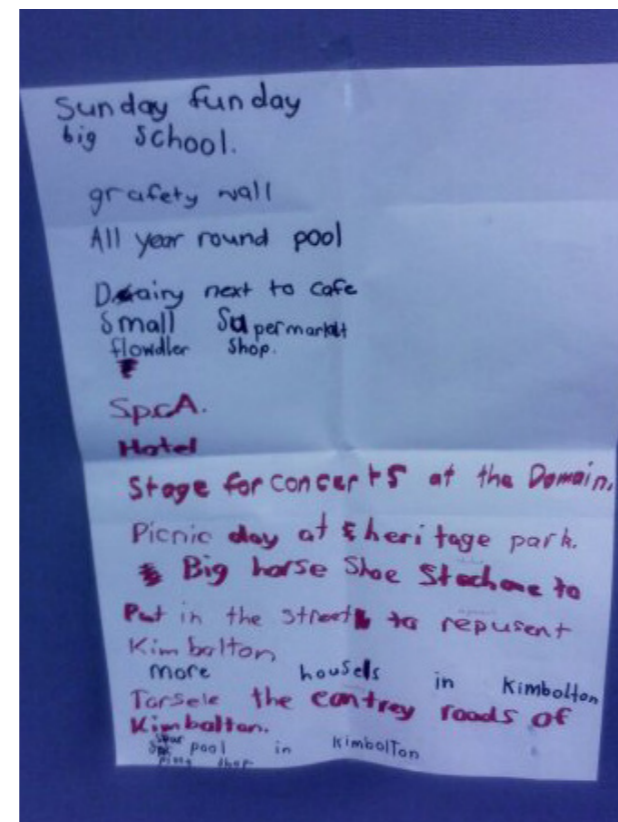 Sunday funday
big School.
grafety wall
All year round pool
Dairy next to cafe
Small Supermarkt
flowdler Shop.
SpcA.
Hotel
Stage for concerts at the Domain.
Picnic day at heritage park.
Big horse Shoe Stachue to
Put in the street to repusent
Kimbolton
more housels in Kimbolton
Tarsele the contrey roads of
Kimbolton.
Spar pool in KimbolTon
shop